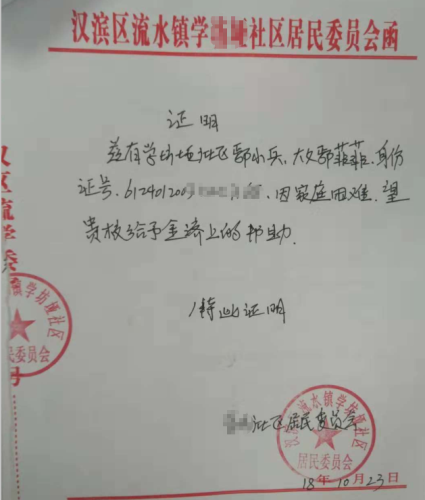 汉滨区流水镇学 垭社区居民委员会函
证明
兹有学坊垭社区鄢小兵,大女鄢菲菲.身份
证号.612401200 .因家庭困难.望
贵校给予经济上的帮助.
特此证明
社区居民委员会
18年10月23日
汉滨区流水镇学坊垭社区
居民委员会
学坊垭社区
居民委员会